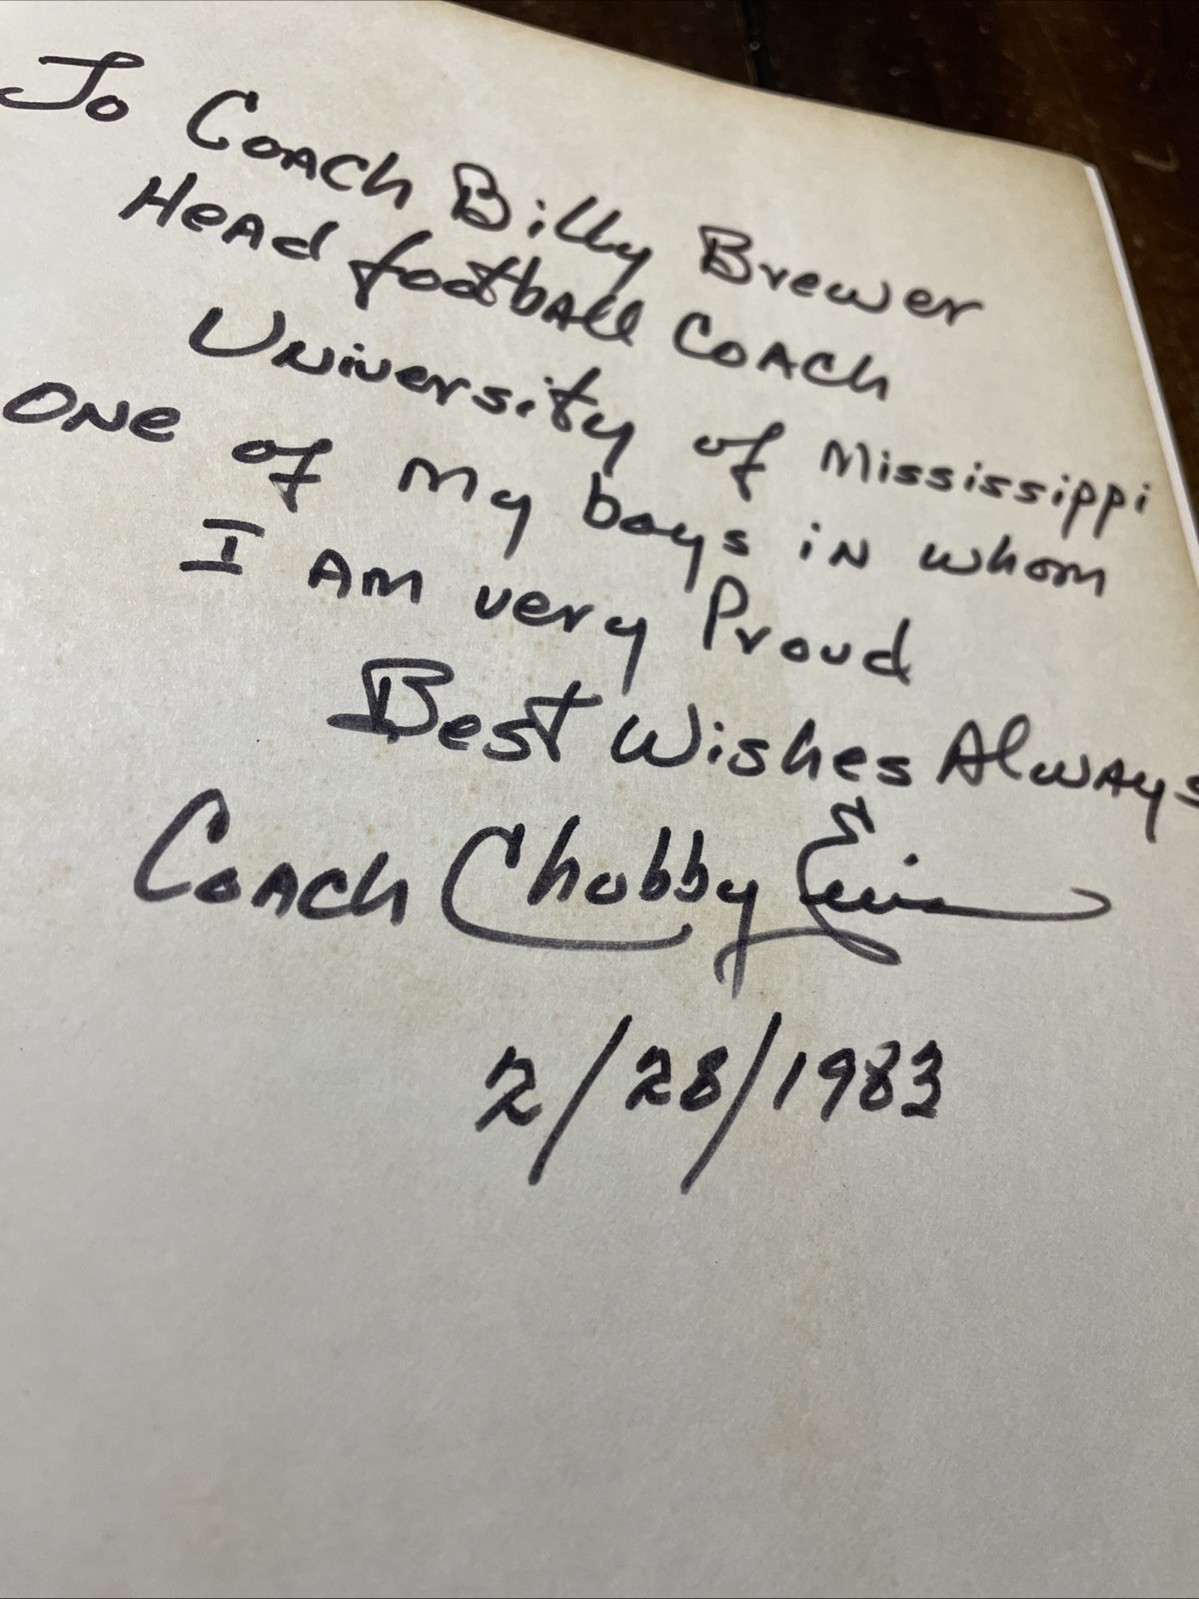 To Coach Billy Brewer
Head football Coach
University of Mississippi
One of my boys in whom
I am very Proud
Best Wishes Always
Coach Chubby
2/28/1983